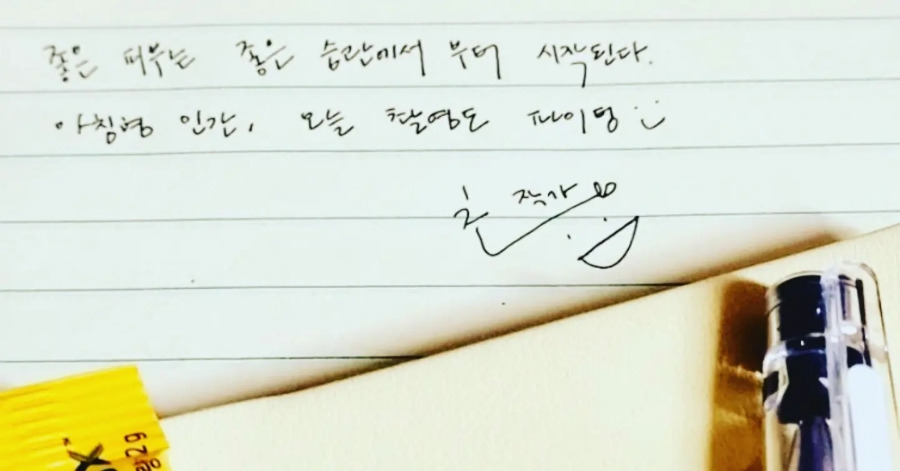 좋은 피부는 좋은 습관에서 부터 시작된다.
아침형 인간, 오늘 촬영도 파이팅
작가
2g